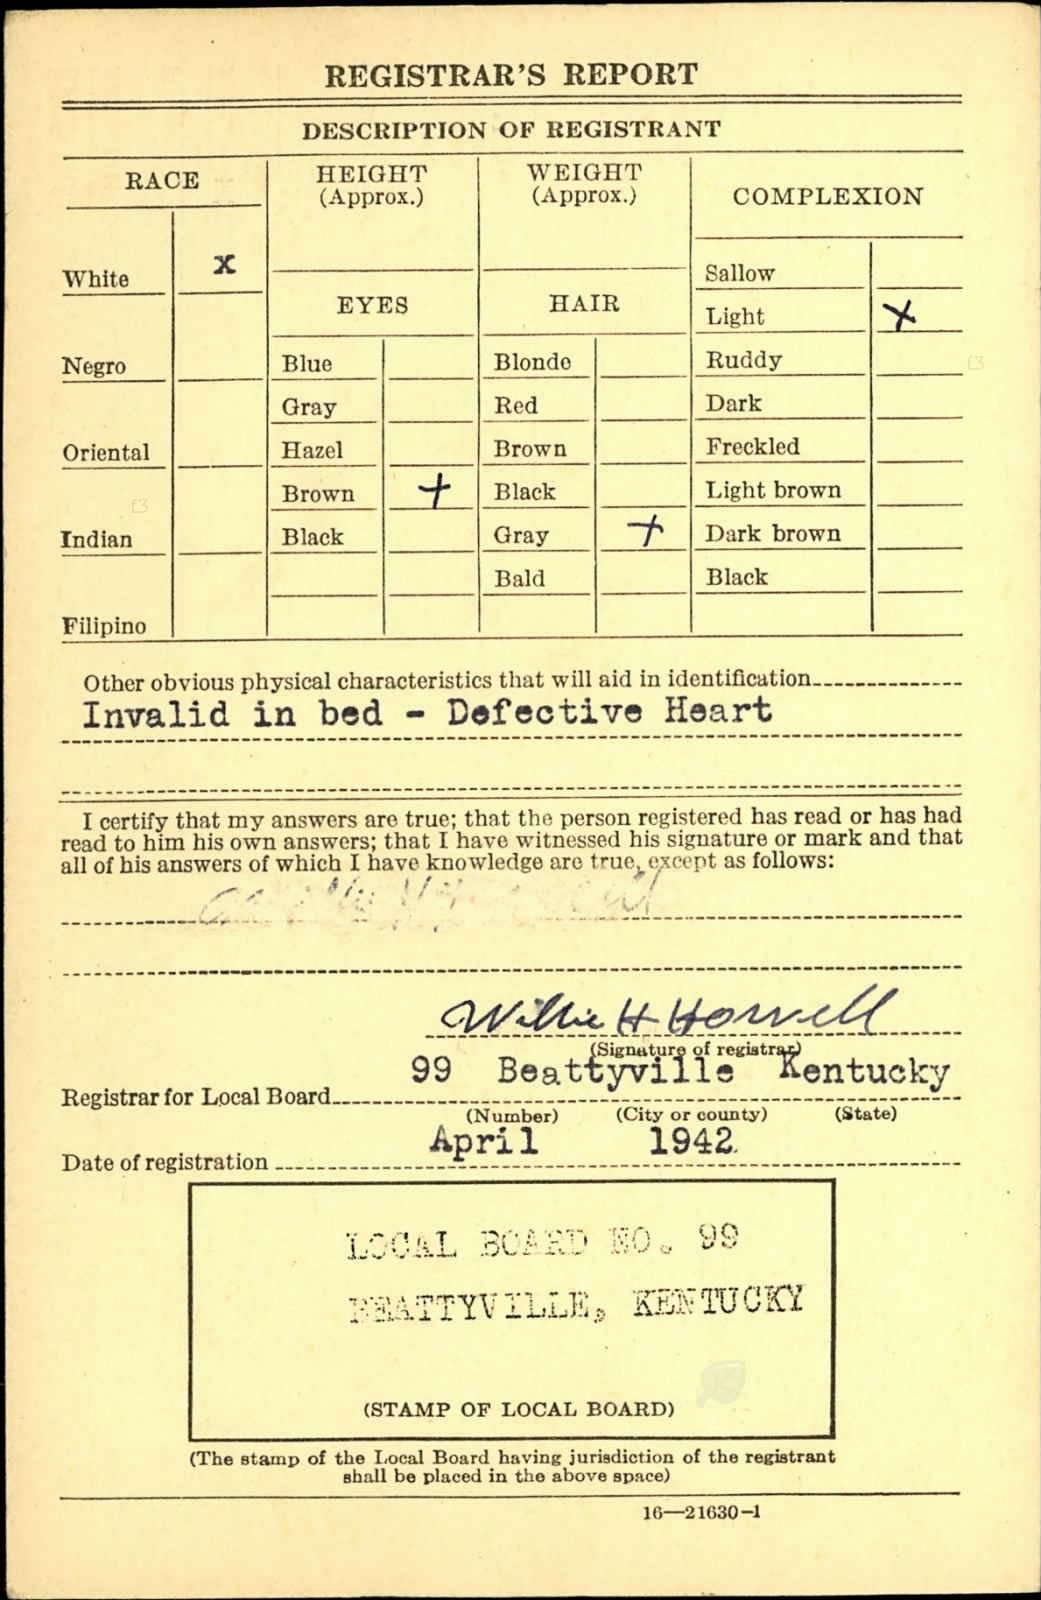 REGISTRAR'S REPORT
DESCRIPTION OF REGISTRANT
RACE
White x
Negro
Oriental
Indian
Filipino
HEIGHT
(Approx.)
EYES
Blue
Gray
Hazel
Brown +
Black
WEIGHT
(Approx.)
HAIR
Blonde
Red
Brown
Black
Gray +
Bald
COMPLEXION
Sallow
Light x
Ruddy
Dark
Freckled
Light brown
Dark brown
Black
Other obvious physical characteristics that will aid in identification
Invalid in bed - Defective Heart
I certify that my answers are true; that the person registered has read or has had
read to him his own answers; that I have witnessed his signature or mark and that
all of his answers of which I have knowledge are true, except as follows:
Willie H Howell
(Signature of registrar)
Registrar for Local Board 99 Beattyville Kentucky
(Number) (City or county) (State)
Date of registration April 1942
LOCAL BOARD NO. 99
BEATTYVILLE, KENTUCKY
(STAMP OF LOCAL BOARD)
(The stamp of the Local Board having jurisdiction of the registrant
shall be placed in the above space)
16—21630-1